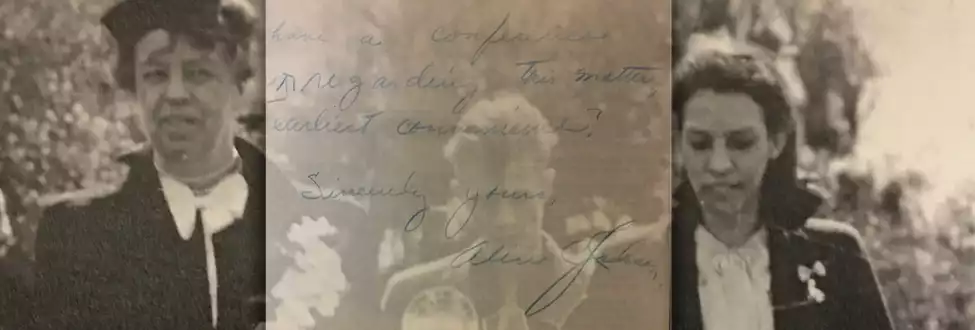 have a conference
regarding this matter,
earliest convenience?
Sincerely yours,